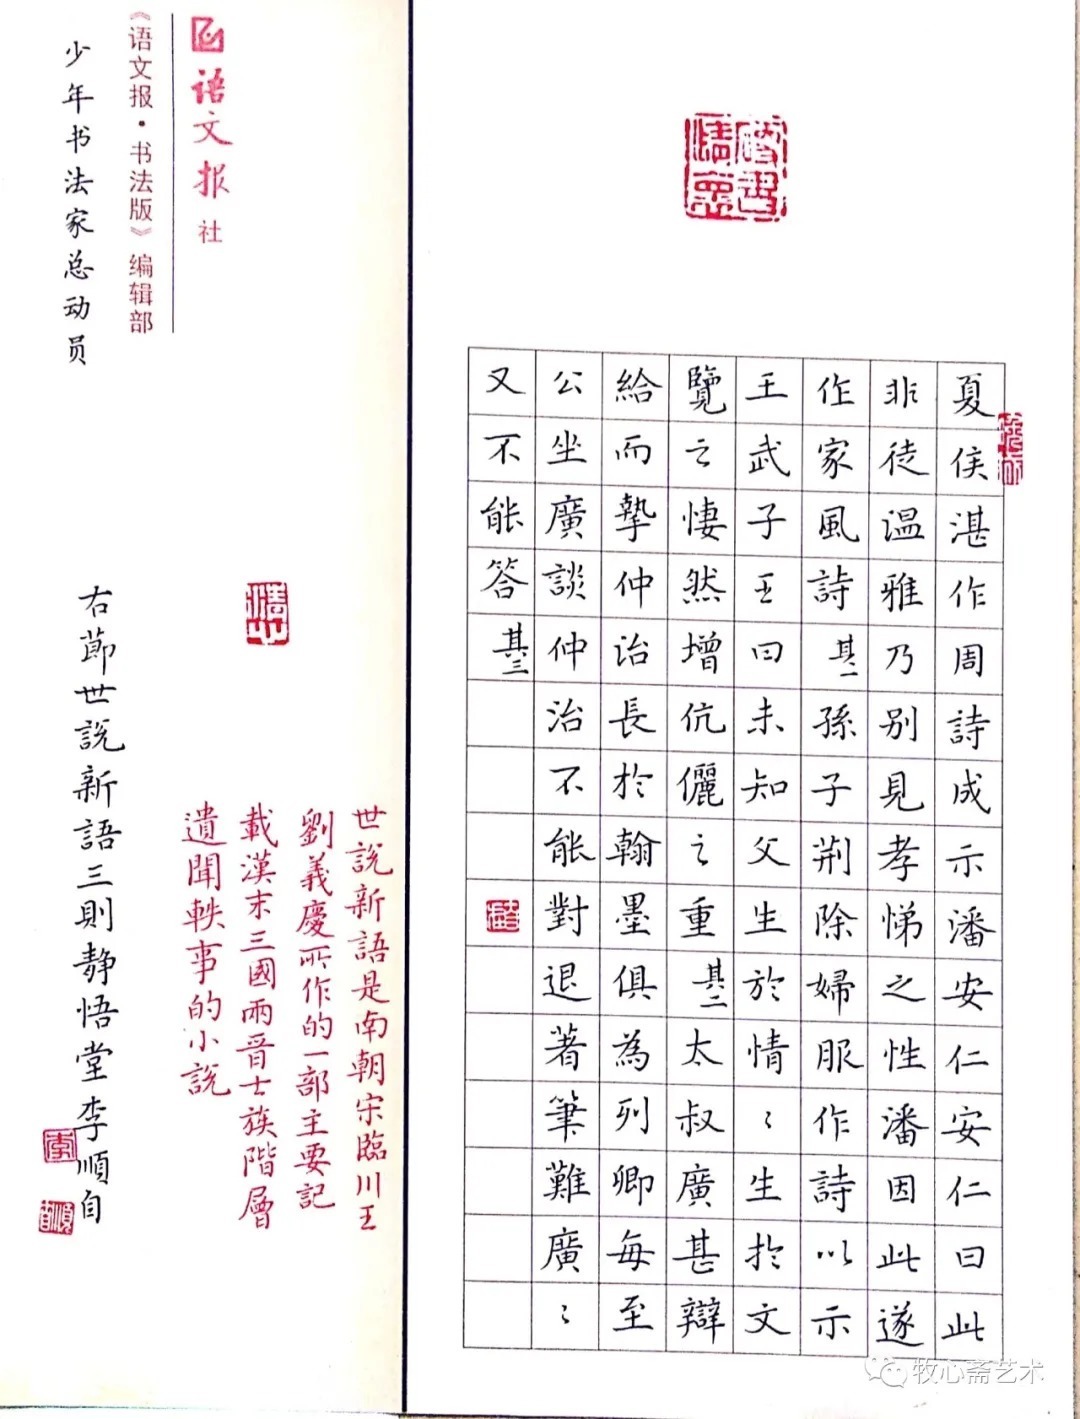 夏侯湛作周詩成示潘安仁安仁曰此
非徒温雅乃別見孝悌之性潘因此遂
作家風詩其一孫子荆除婦服作詩以示
王武子王曰未知父生於情〻生於文
覽之悽然增伉儷之重其二太叔廣甚辯
給而摯仲治長於翰墨俱為列卿每至
公坐廣談仲治不能對退著筆難廣〻
又不能答其三
世說新語是南朝宋臨川王
劉義慶所作的一部主要記
載漢末三國兩晋士族階層
遺聞軼事的小說
语文报社
《语文报·书法版》编辑部
少年书法家总动员
右節世說新語三則静悟堂李順自
牧心斋艺术